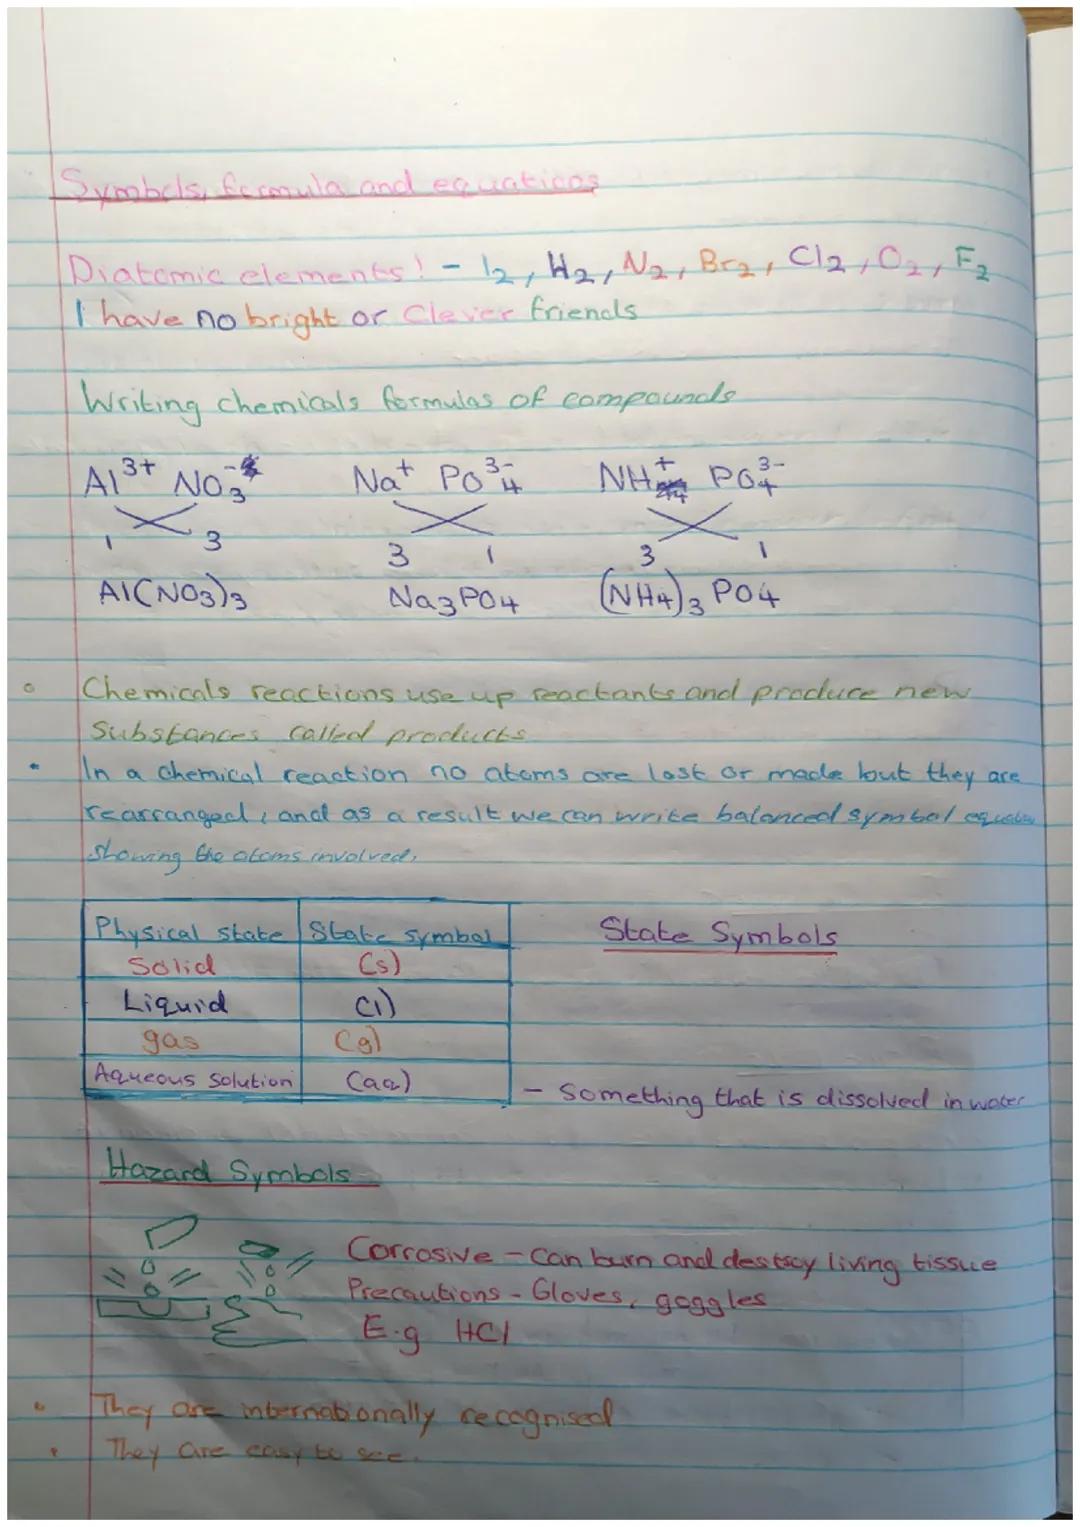 Symbols, formula and equations
Diatomic elements! - I2, H2, N2, Br2, Cl2, O2, F2
I have no bright or Clever friends
Writing chemicals formulas of compounds
Al3+ NO3- Na+ PO43- NH4+ PO43-
1 3 3 1 3 1
Al(NO3)3 Na3PO4 (NH4)3 PO4
Chemicals reactions use up reactants and produce new
Substances called products
In a chemical reaction no atoms are lost or made but they are
rearranged, and as a result we can write balanced symbol
showing the atoms involved.
Physical state State symbol State Symbols
Solid (s)
Liquid (l)
gas (g)
Aqueous Solution (aq) - Something that is dissolved in water
Hazard Symbols
Corrosive - Can burn and destroy living tissue
Precautions - Gloves, goggles
E.g HCl
They are internationally recognised
They are easy to see.